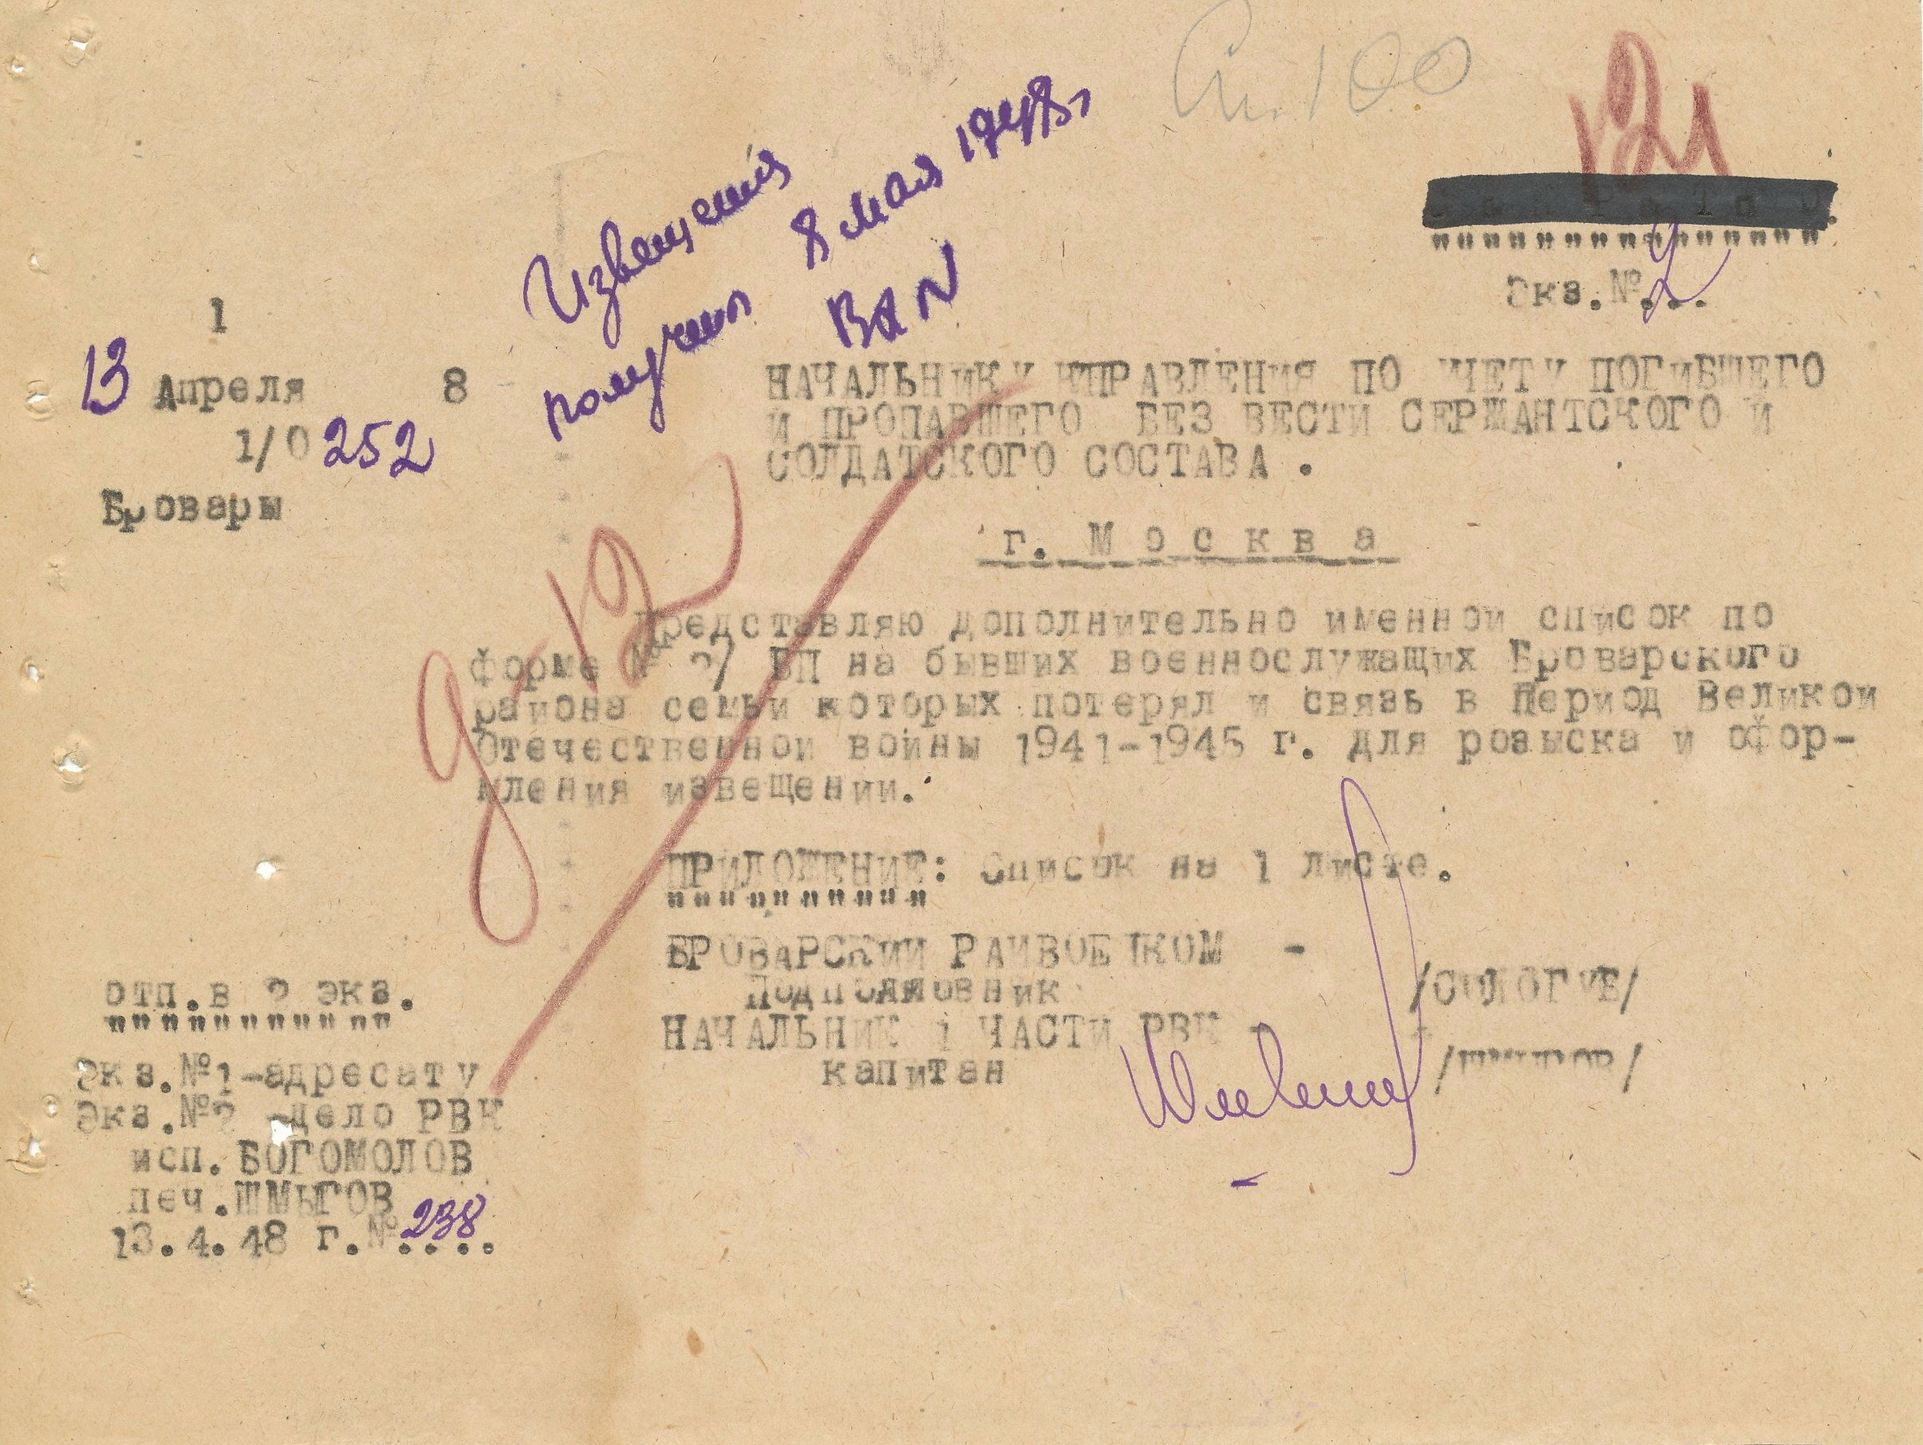 Сп. 100
121
Экз.№.2..
Извещения
получил 8 мая 1948г
1
13 Апреля 8
1/0252
Бровары
НАЧАЛЬНИКУ УПРАВЛЕНИЯ ПО УЧЕТУ ПОГИБШЕГО
И ПРОПАВШЕГО БЕЗ ВЕСТИ СЕРЖАНТСКОГО И
СОЛДАТСКОГО СОСТАВА .
г. Москва
Представляю дополнительно именной список по
форме № 2/ БП на бывших военнослужащих Броварского
района семьи которых потерял и связь в период Великой
Отечественной войны 1941-1945 г. для розыска и офор-
мления извещении.
д-12
ПРИЛОЖЕНИЕ: Список на 1 листе.
БРОВАРСКИЙ РАЙВОЕНКОМ -
Подполковник /СОЛОГУБ/
НАЧАЛЬНИК 1 ЧАСТИ РВК -
капитан /ШМЫГОВ/
отп.в 2 экз.
Экз.№1-адресату
Экз.№2 -дело РВК
исп. БОГОМОЛОВ
печ.ШМЫГОВ
13.4.48 г.№238